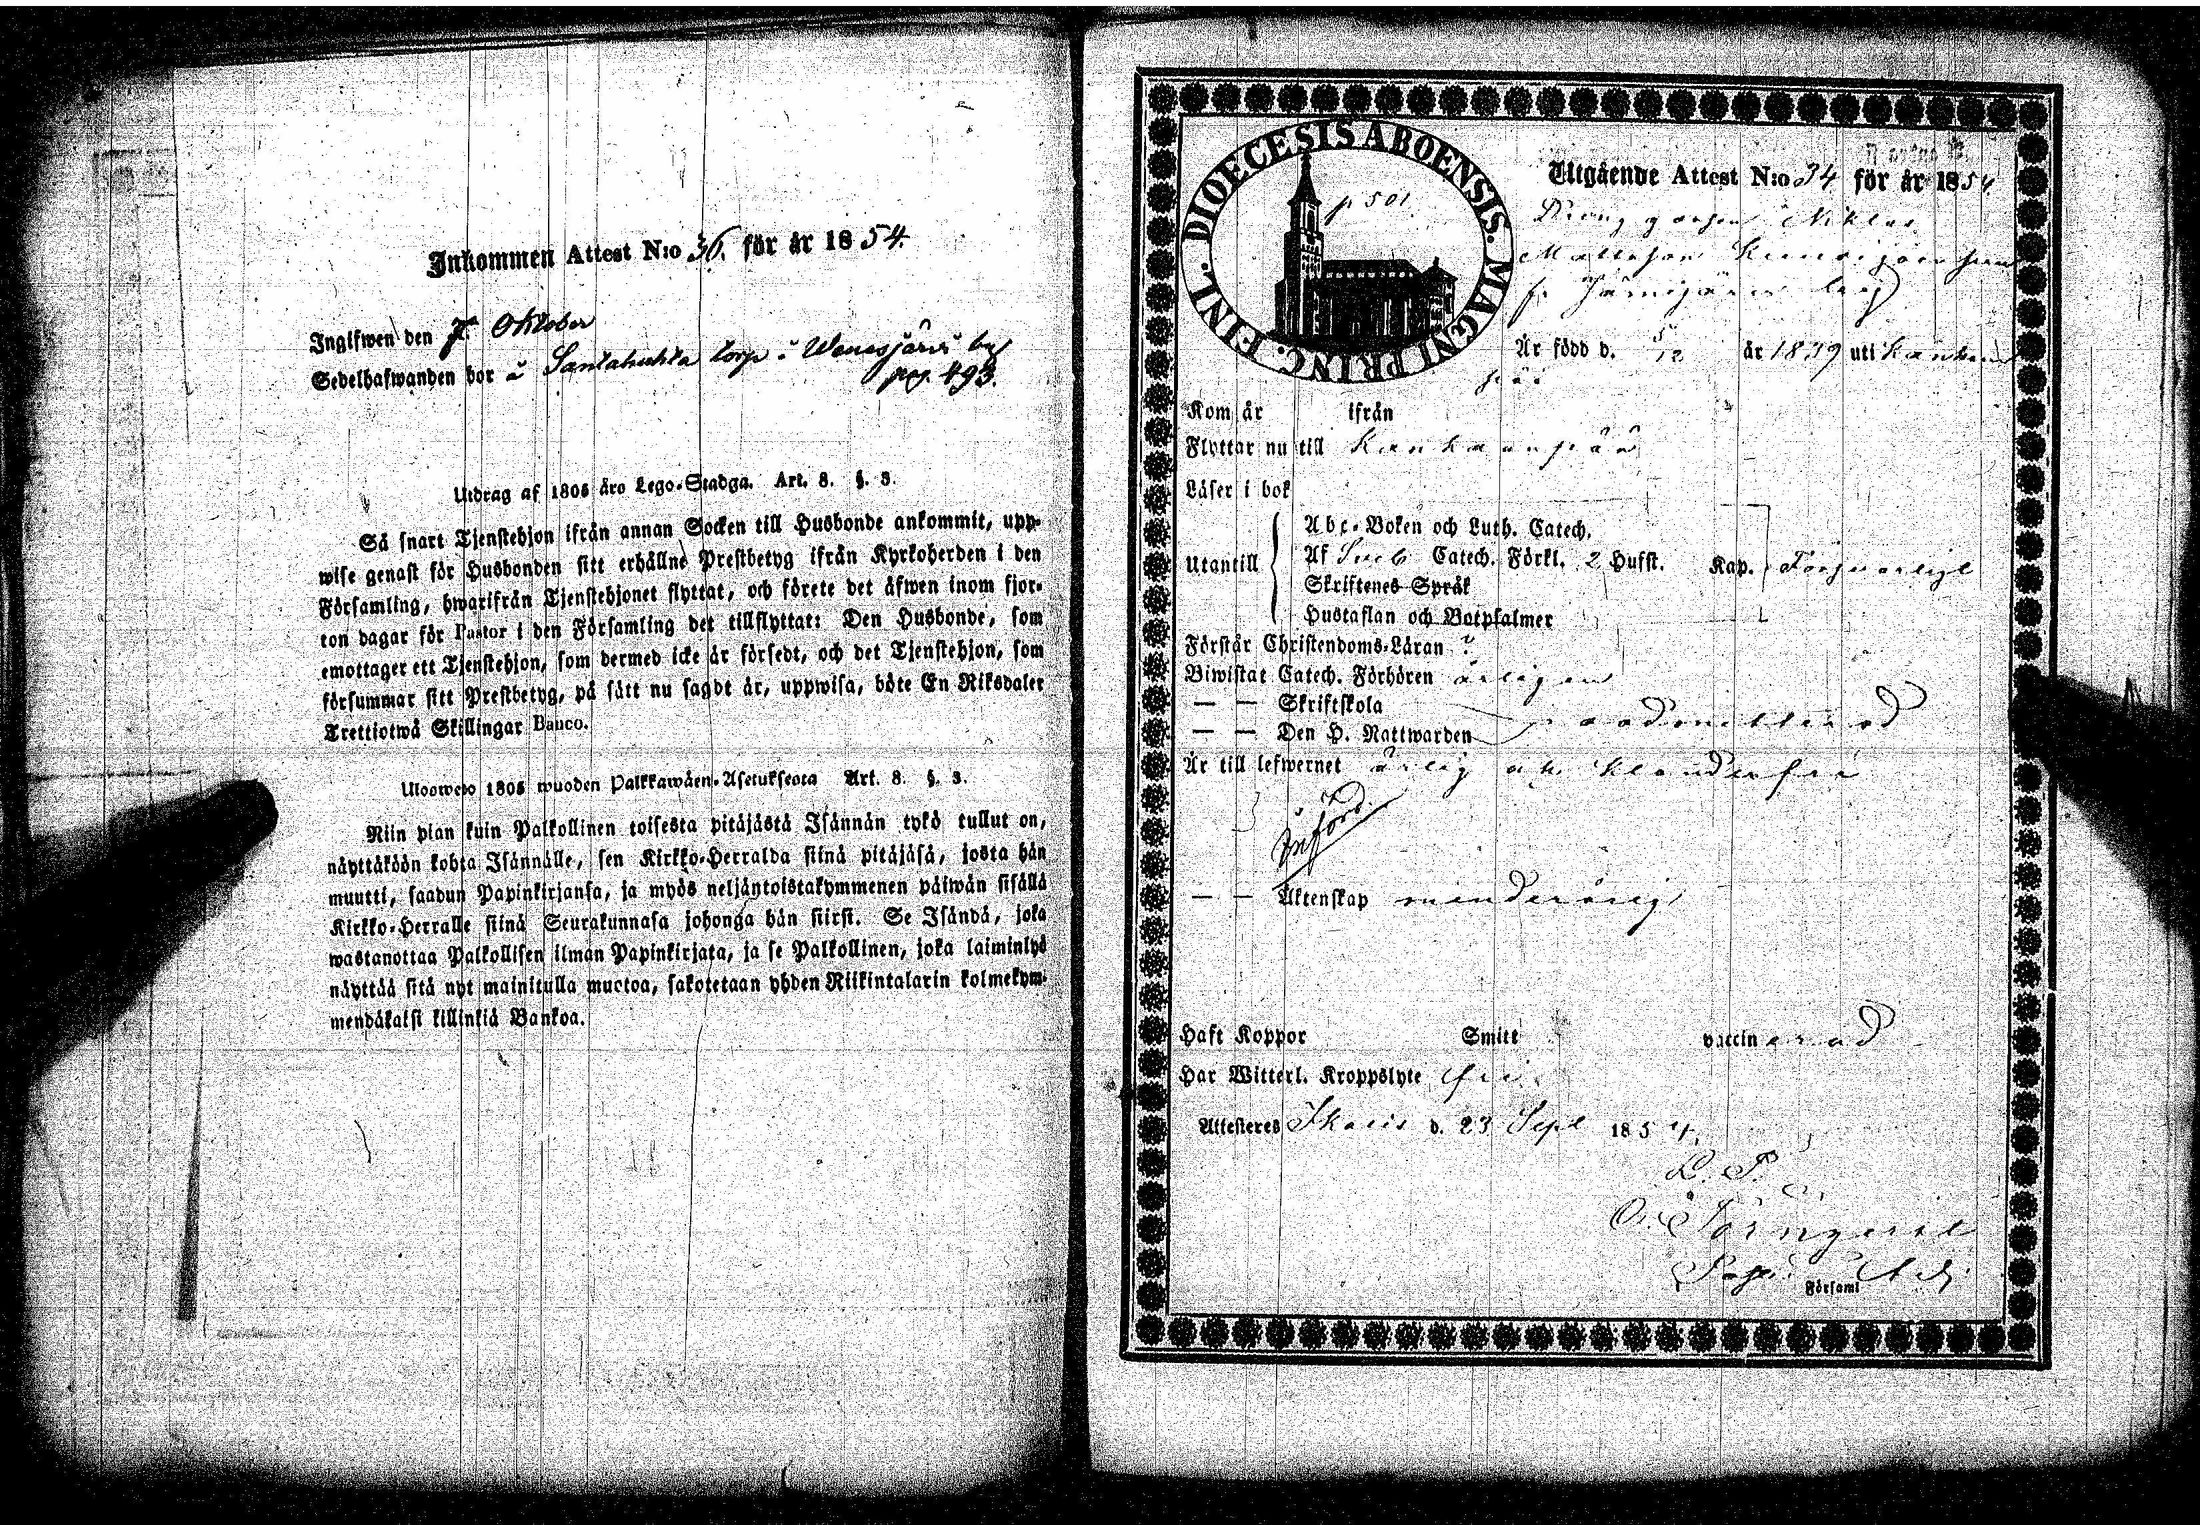 Inkommen Attest N:o 36. för år 1854.
Ingifwen den 7. Oktober
Sedelhafwanden bor å Santahuhta torp i Wenesjärvi by
pag. 493.
Utdrag af 1805 års Lego-Stadga. Art. 8. §. 3.
Så snart Tjenstehjon ifrån annan Socken till Husbonde ankommit, upp-
wise genast för Husbonden sitt erhållne Prestbetyg ifrån Kyrkoherden i den
Församling, hwarifrån Tjenstehjonet flyttat, och förete det äfwen inom fjor-
ton dagar för Pastor i den Församling det tillflyttat: Den Husbonde, som
emottager ett Tjenstehjon, som dermed icke är försedt, och det Tjenstehjon, som
försummar sitt Prestbetyg, på sätt nu sagdt är, uppwisa, böte En Riksdaler
Trettiotwå Skillingar Banco.
Ulosweto 1805 wuoden Palkkawäen-Asetuksesta Art. 8. §. 3.
Niin pian kuin Palkollinen toisesta pitäjästä Isännän tykö tullut on,
näyttäköön kohta Isännälle, sen Kirkko-Herralda siinä pitäjäsä, josta hän
muutti, saadun Papinkirjansa, ja myös neljäntoistakymmenen päiwän sisällä
Kirkko-Herralle siinä Seurakunnasa johonga hän siirsi. Se Isändä, joka
wastanottaa Palkollisen ilman Papinkirjata, ja se Palkollinen, joka laiminlyö
näyttää sitä nyt mainitulla muotoa, sakotetaan yhden Riikintalarin kolmekym-
mendäkaksi killinkiä Bankoa.
DIOECESIS ABOENSIS. MAGNI PRINC. FINL.
p 501.
Utgående Attest N:o 34 för år 1854
Dräng gossen Niklas
Mattsson
fr by
Är född d. 5/12 år 1839 uti Kankaan
pää
Kom år ifrån
Flyttar nu till Kankaanpää
Läser i bok
Utantill
Abc-Boken och Luth. Catech.
Af Sveb Catech. Förkl. 2 Hufst. Kap. Försvarligt
Skriftenes Språk
Hustaflan och Botpsalmer
Förstår Christendoms-Läran ?
Biwistat Catech. Förhören årligen
— — Skriftskola
— — Den H. Nattwarden oadmitterad
Är till lefwernet ärlig och klanderfri
Införd
— — Äktenskap minderårig
Haft Koppor Smitt vaccinerad
Har Witterl. Kroppslyte fri
Attesteras Ikalis d. 23 Sept 1854.
Törnqvist
Församl